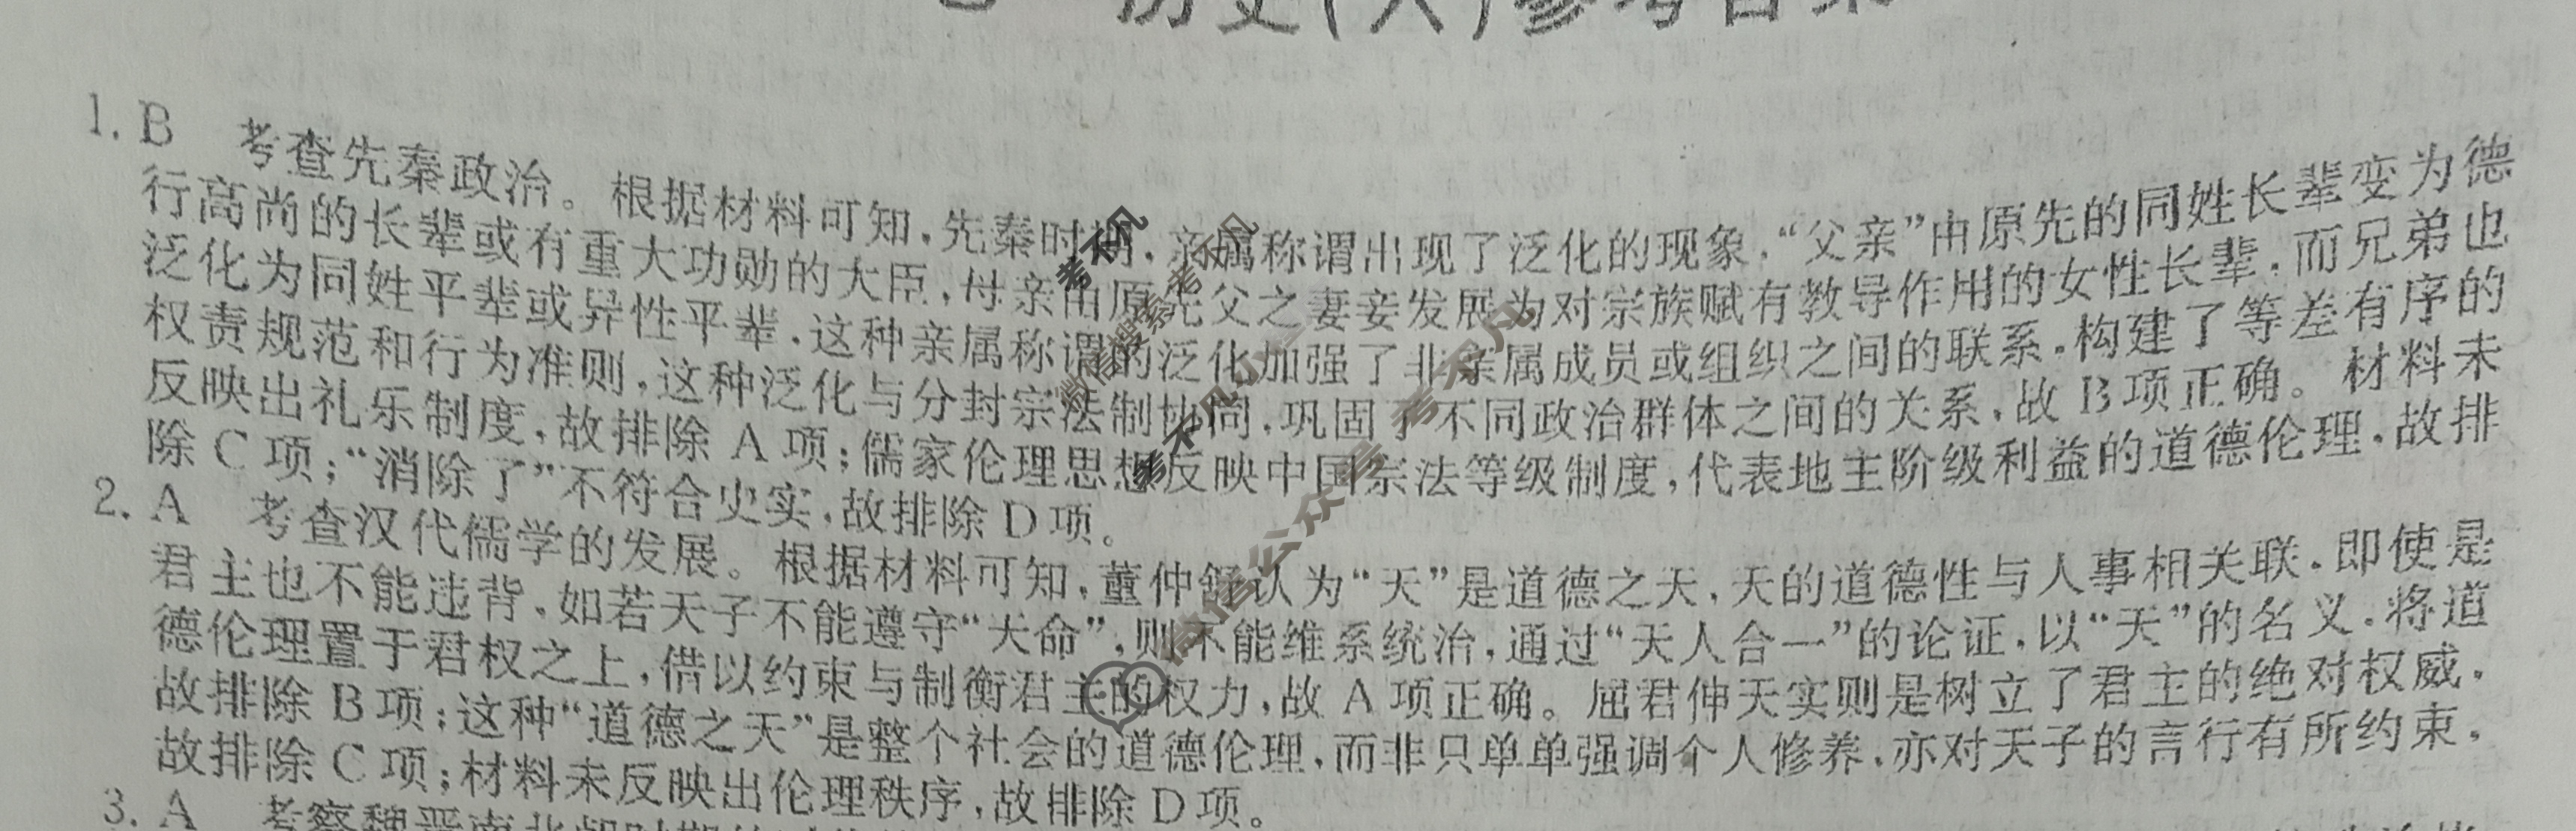 历史(八)参考答案
1. B 考查先秦政治。根据材料可知,先秦时期,亲属称谓出现了泛化的现象,“父亲”由原先的同姓长辈变为德
行高尚的长辈或有重大功勋的大臣,母亲由原先父之妻妾发展为对宗族赋有教导作用的女性长辈,而兄弟也
泛化为同姓平辈或异性平辈,这种亲属称谓的泛化加强了非亲属成员或组织之间的联系,构建了等差有序的
权责规范和行为准则,这种泛化与分封宗法制协同,巩固了不同政治群体之间的关系,故 B 项正确。材料未
反映出礼乐制度,故排除 A 项;儒家伦理思想反映中国宗法等级制度,代表地主阶级利益的道德伦理,故排
除 C 项;“消除了”不符合史实,故排除 D 项。
2. A 考查汉代儒学的发展。根据材料可知,董仲舒认为“天”是道德之天,天的道德性与人事相关联,即使是
君主也不能违背,如若天子不能遵守“天命”,则不能维系统治,通过“天人合一”的论证,以“天”的名义,将道
德伦理置于君权之上,借以约束与制衡君主的权力,故 A 项正确。屈君伸天实则是树立了君主的绝对权威,
故排除 B 项;这种“道德之天”是整个社会的道德伦理,而非只单单强调个人修养,亦对天子的言行有所约束,
故排除 C 项;材料未反映出伦理秩序,故排除 D 项。
3. A 考察魏晋南北朝时期的